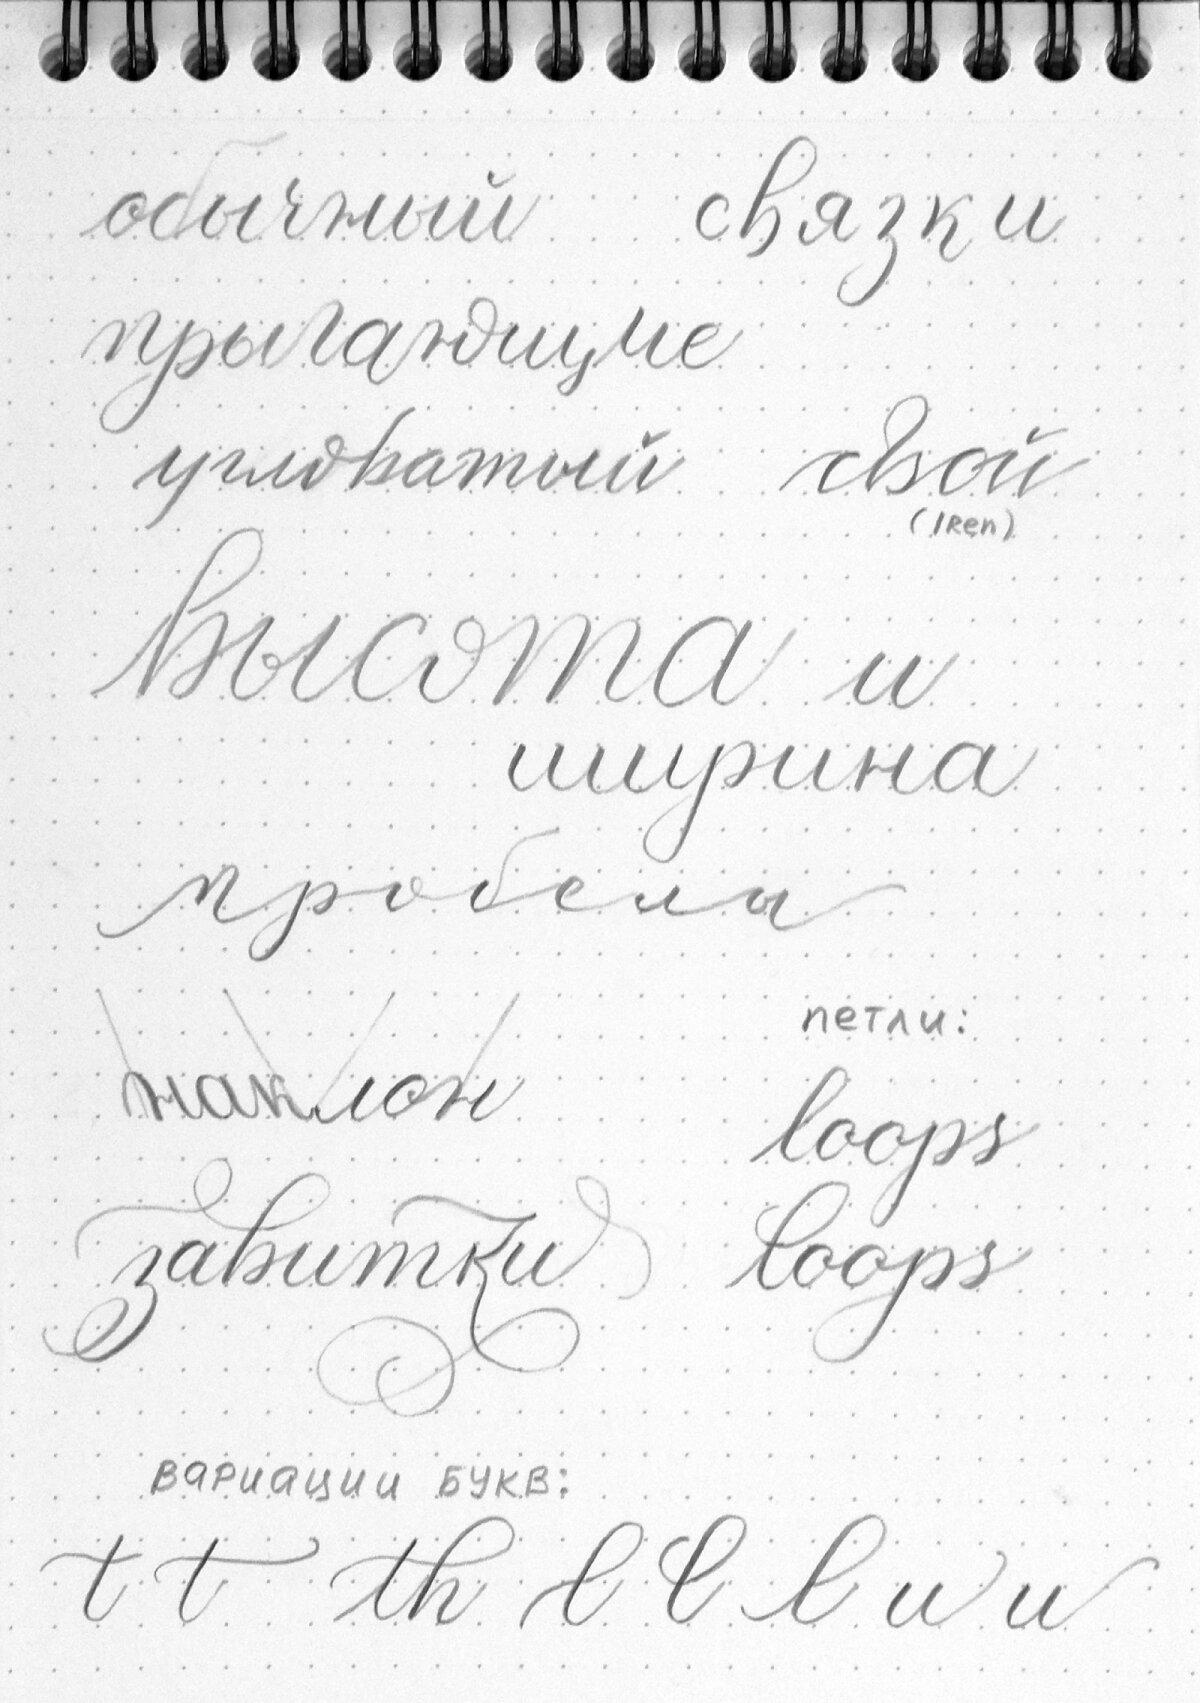 обычный связки
прыгающие
угловатый свой
(IRen)
высота и
ширина
пробелы
наклон
петли:
loops
завитки loops
вариации букв:
t t th l l l и и